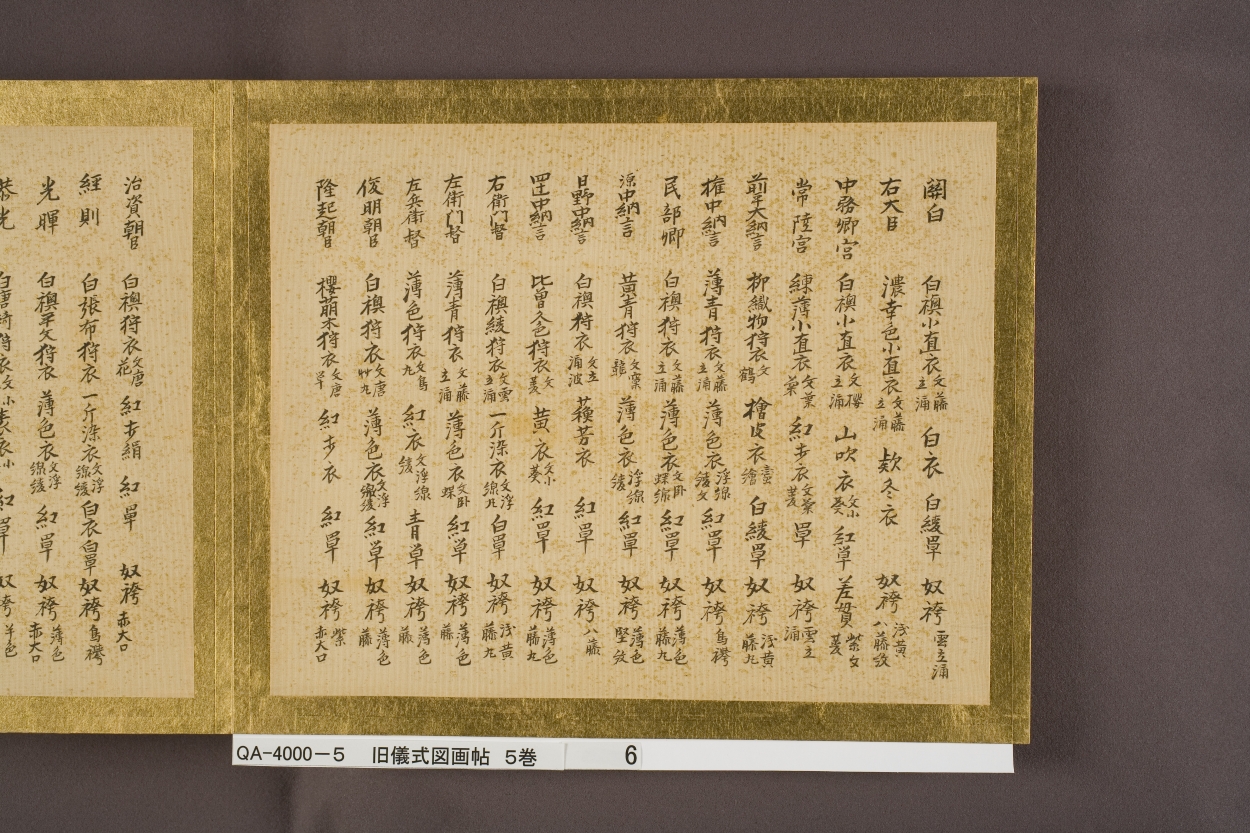 関白 白襖小直衣 文藤立涌 白衣 白綾単 奴袴 雲立涌
右大臣 濃 色小直衣 文藤立涌 款冬衣 奴袴 浅黄八藤
中務卿宮 白襖小直衣 文櫻立涌 山吹衣 文小葵 紅単 差貫 紫
常陸宮 練薄小直衣 文葉 紅歩衣 単 奴袴 雲立涌
前大納言 柳織物狩衣 文鶴 檜皮衣 白綾単 奴袴 浅黄藤丸
権中納言 薄青狩衣 文藤立涌 薄色衣 浮線綾文 紅単 奴袴 鳥襷
民部卿 白襖狩衣 文藤立涌 薄色衣 文卧蝶 紅単 奴袴 薄色藤丸
源中納言 黄青狩衣 文窠 薄色衣 浮線綾 紅単 奴袴 薄色堅文
日野中納言 白襖狩衣 文立涌波 蘓芳衣 紅単 奴袴 八藤
中納言 比曽久色狩衣 文菱 黄衣 文小葵 紅単 奴袴 薄色藤丸
右衛門督 白襖綾狩衣 文雲立涌 一斤染衣 文浮線 丸 白単 奴袴 浅黄藤丸
左衛门督 薄青狩衣 文藤立涌 薄色衣 文卧蝶 紅単 奴袴 薄色藤
左兵衛督 薄色狩衣 文鳥丸 紅衣 文浮線綾 青単 奴袴 薄色藤
俊明朝臣 白襖狩衣 文唐艸丸 薄色衣 文浮線綾 紅単 奴袴 薄色藤
隆起朝臣 櫻萌木狩衣 文唐草 紅歩衣 紅単 奴袴 紫赤大口
治資朝臣 白襖狩衣 文唐花 紅歩絹 紅単 奴袴 赤大口
経則 白張布狩衣 一斤染衣 文浮線綾 白衣 白単 奴袴 鳥襷
光暉 白襖平文狩衣 薄色衣 文浮線綾 紅単 奴袴 薄色赤大口
光 白唐綺狩衣 文小 衣 小 紅単 奴袴
QA-4000-5 旧儀式図画帖 5巻 6